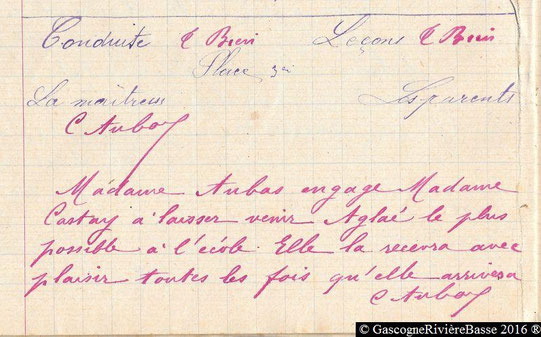 Conduite T. Bien Leçons T. Bien
Place 3e
La maîtresse Les parents
C Aubas
Madame Aubas engage Madame
Castay à laisser venir Aglaé le plus
possible à l'école. Elle la recevra avec
plaisir toutes les fois qu'elle arrivera
C Aubas
© GascogneRivièreBasse 2016 ®